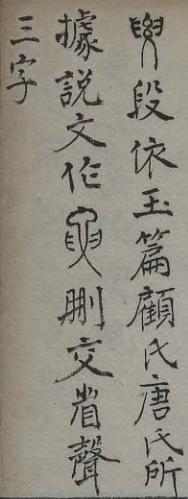 段依玉篇顧氏唐氏所
據説文作删交省聲
三字